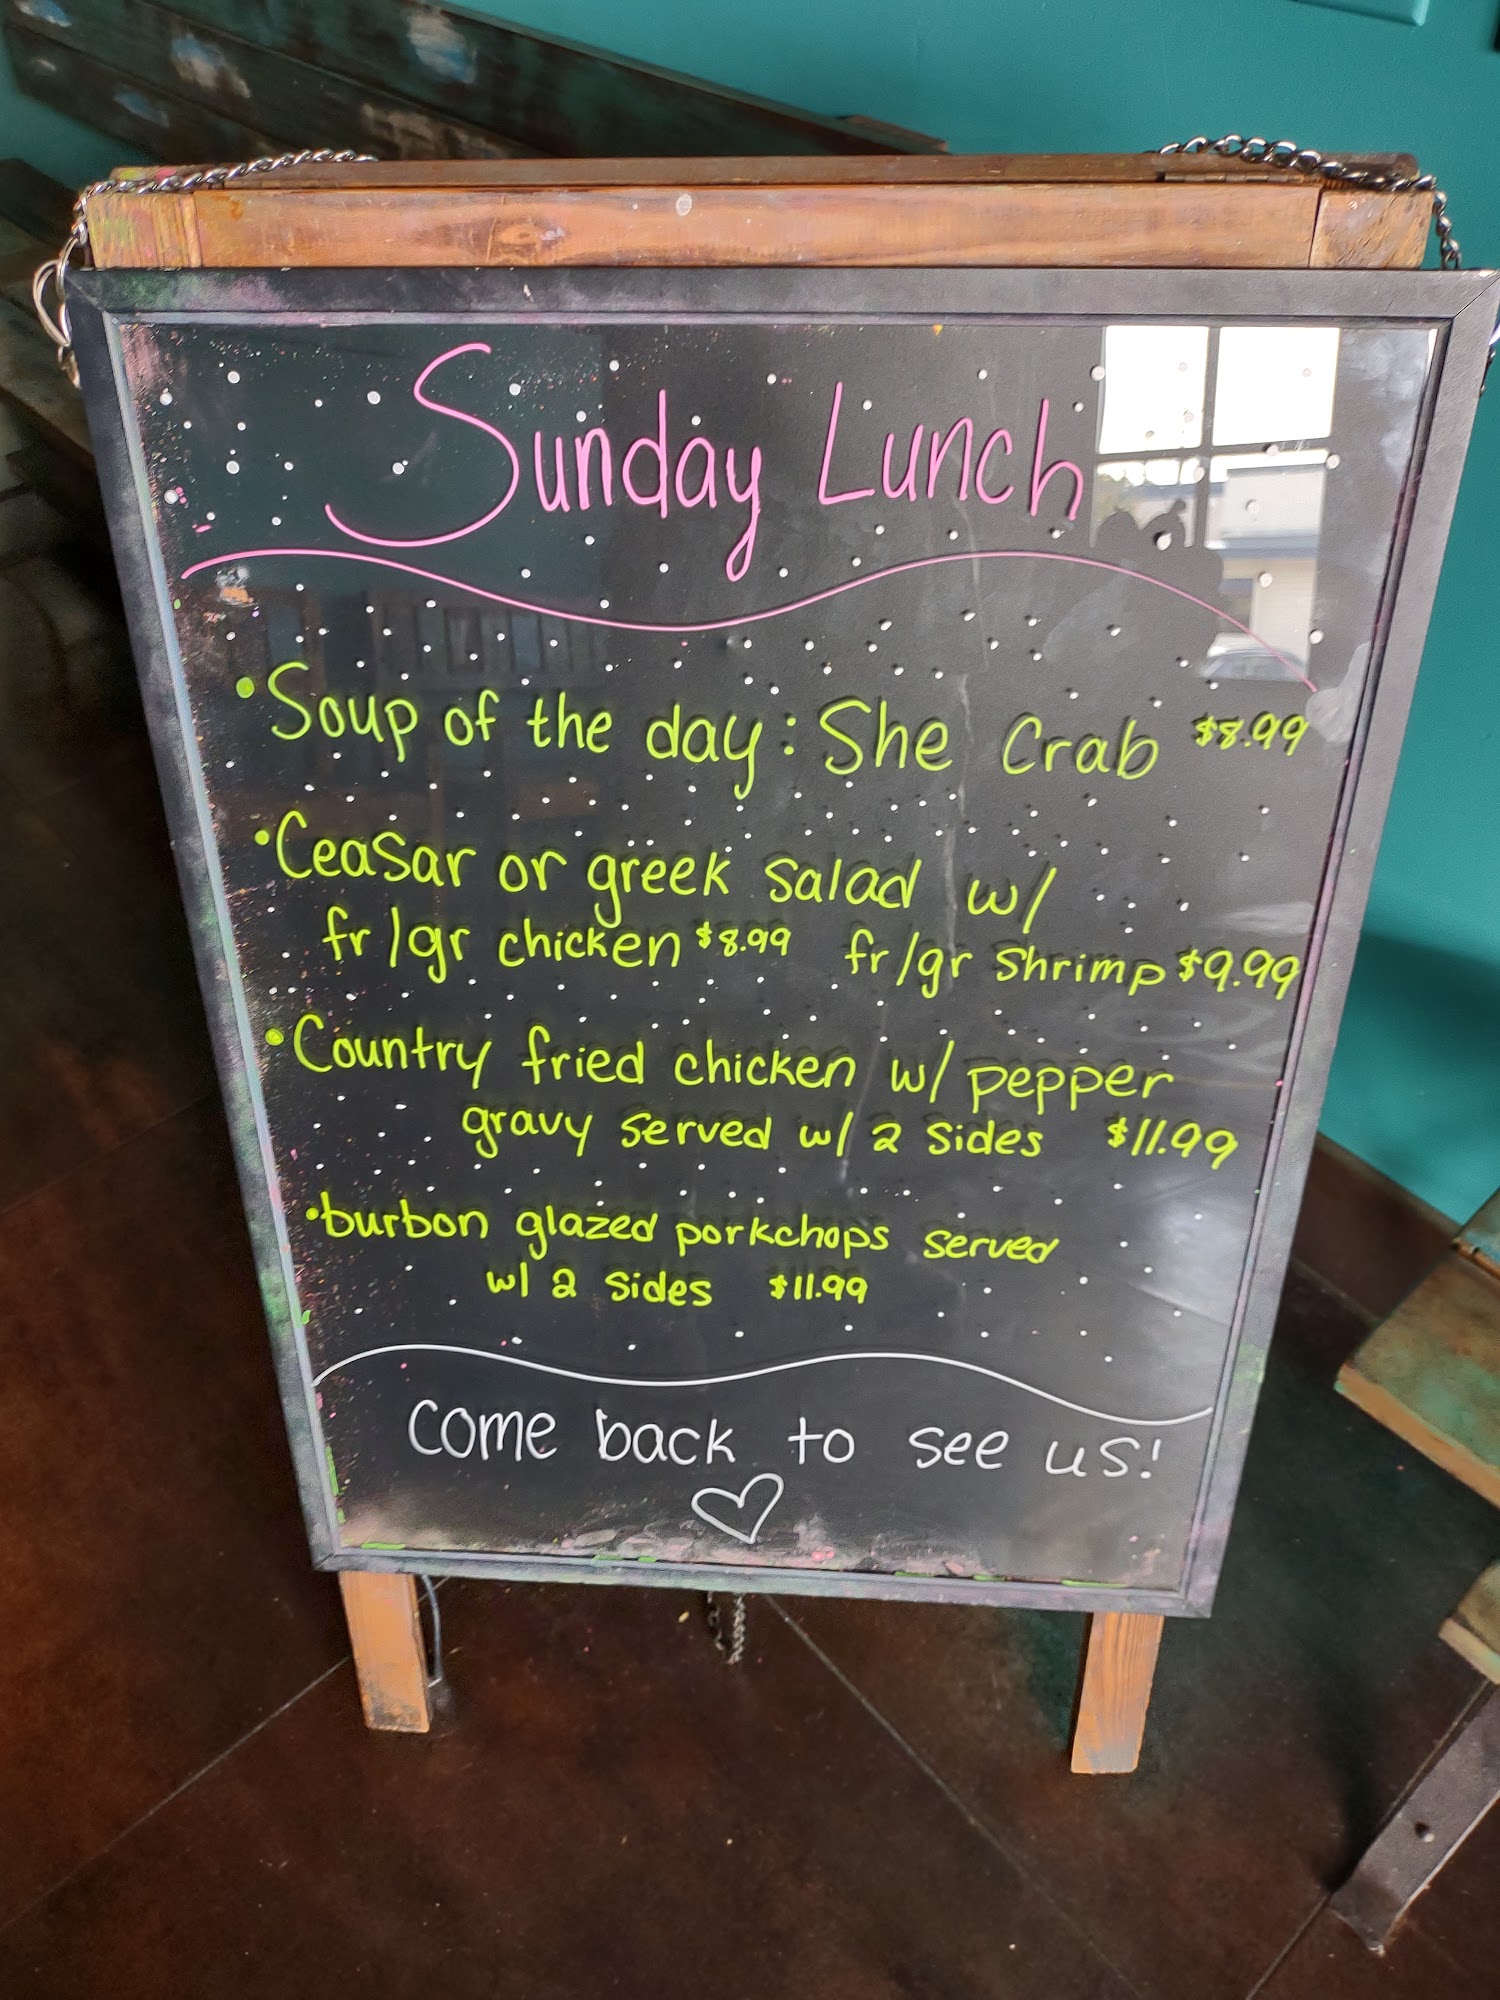 Sunday Lunch
• Soup of the day: She Crab $8.99
• Ceasar or greek salad w/
fr/gr chicken $8.99 fr/gr Shrimp $9.99
• Country fried chicken w/ pepper
gravy served w/ 2 sides $11.99
• burbon glazed porkchops served
w/ 2 sides $11.99
come back to see us!